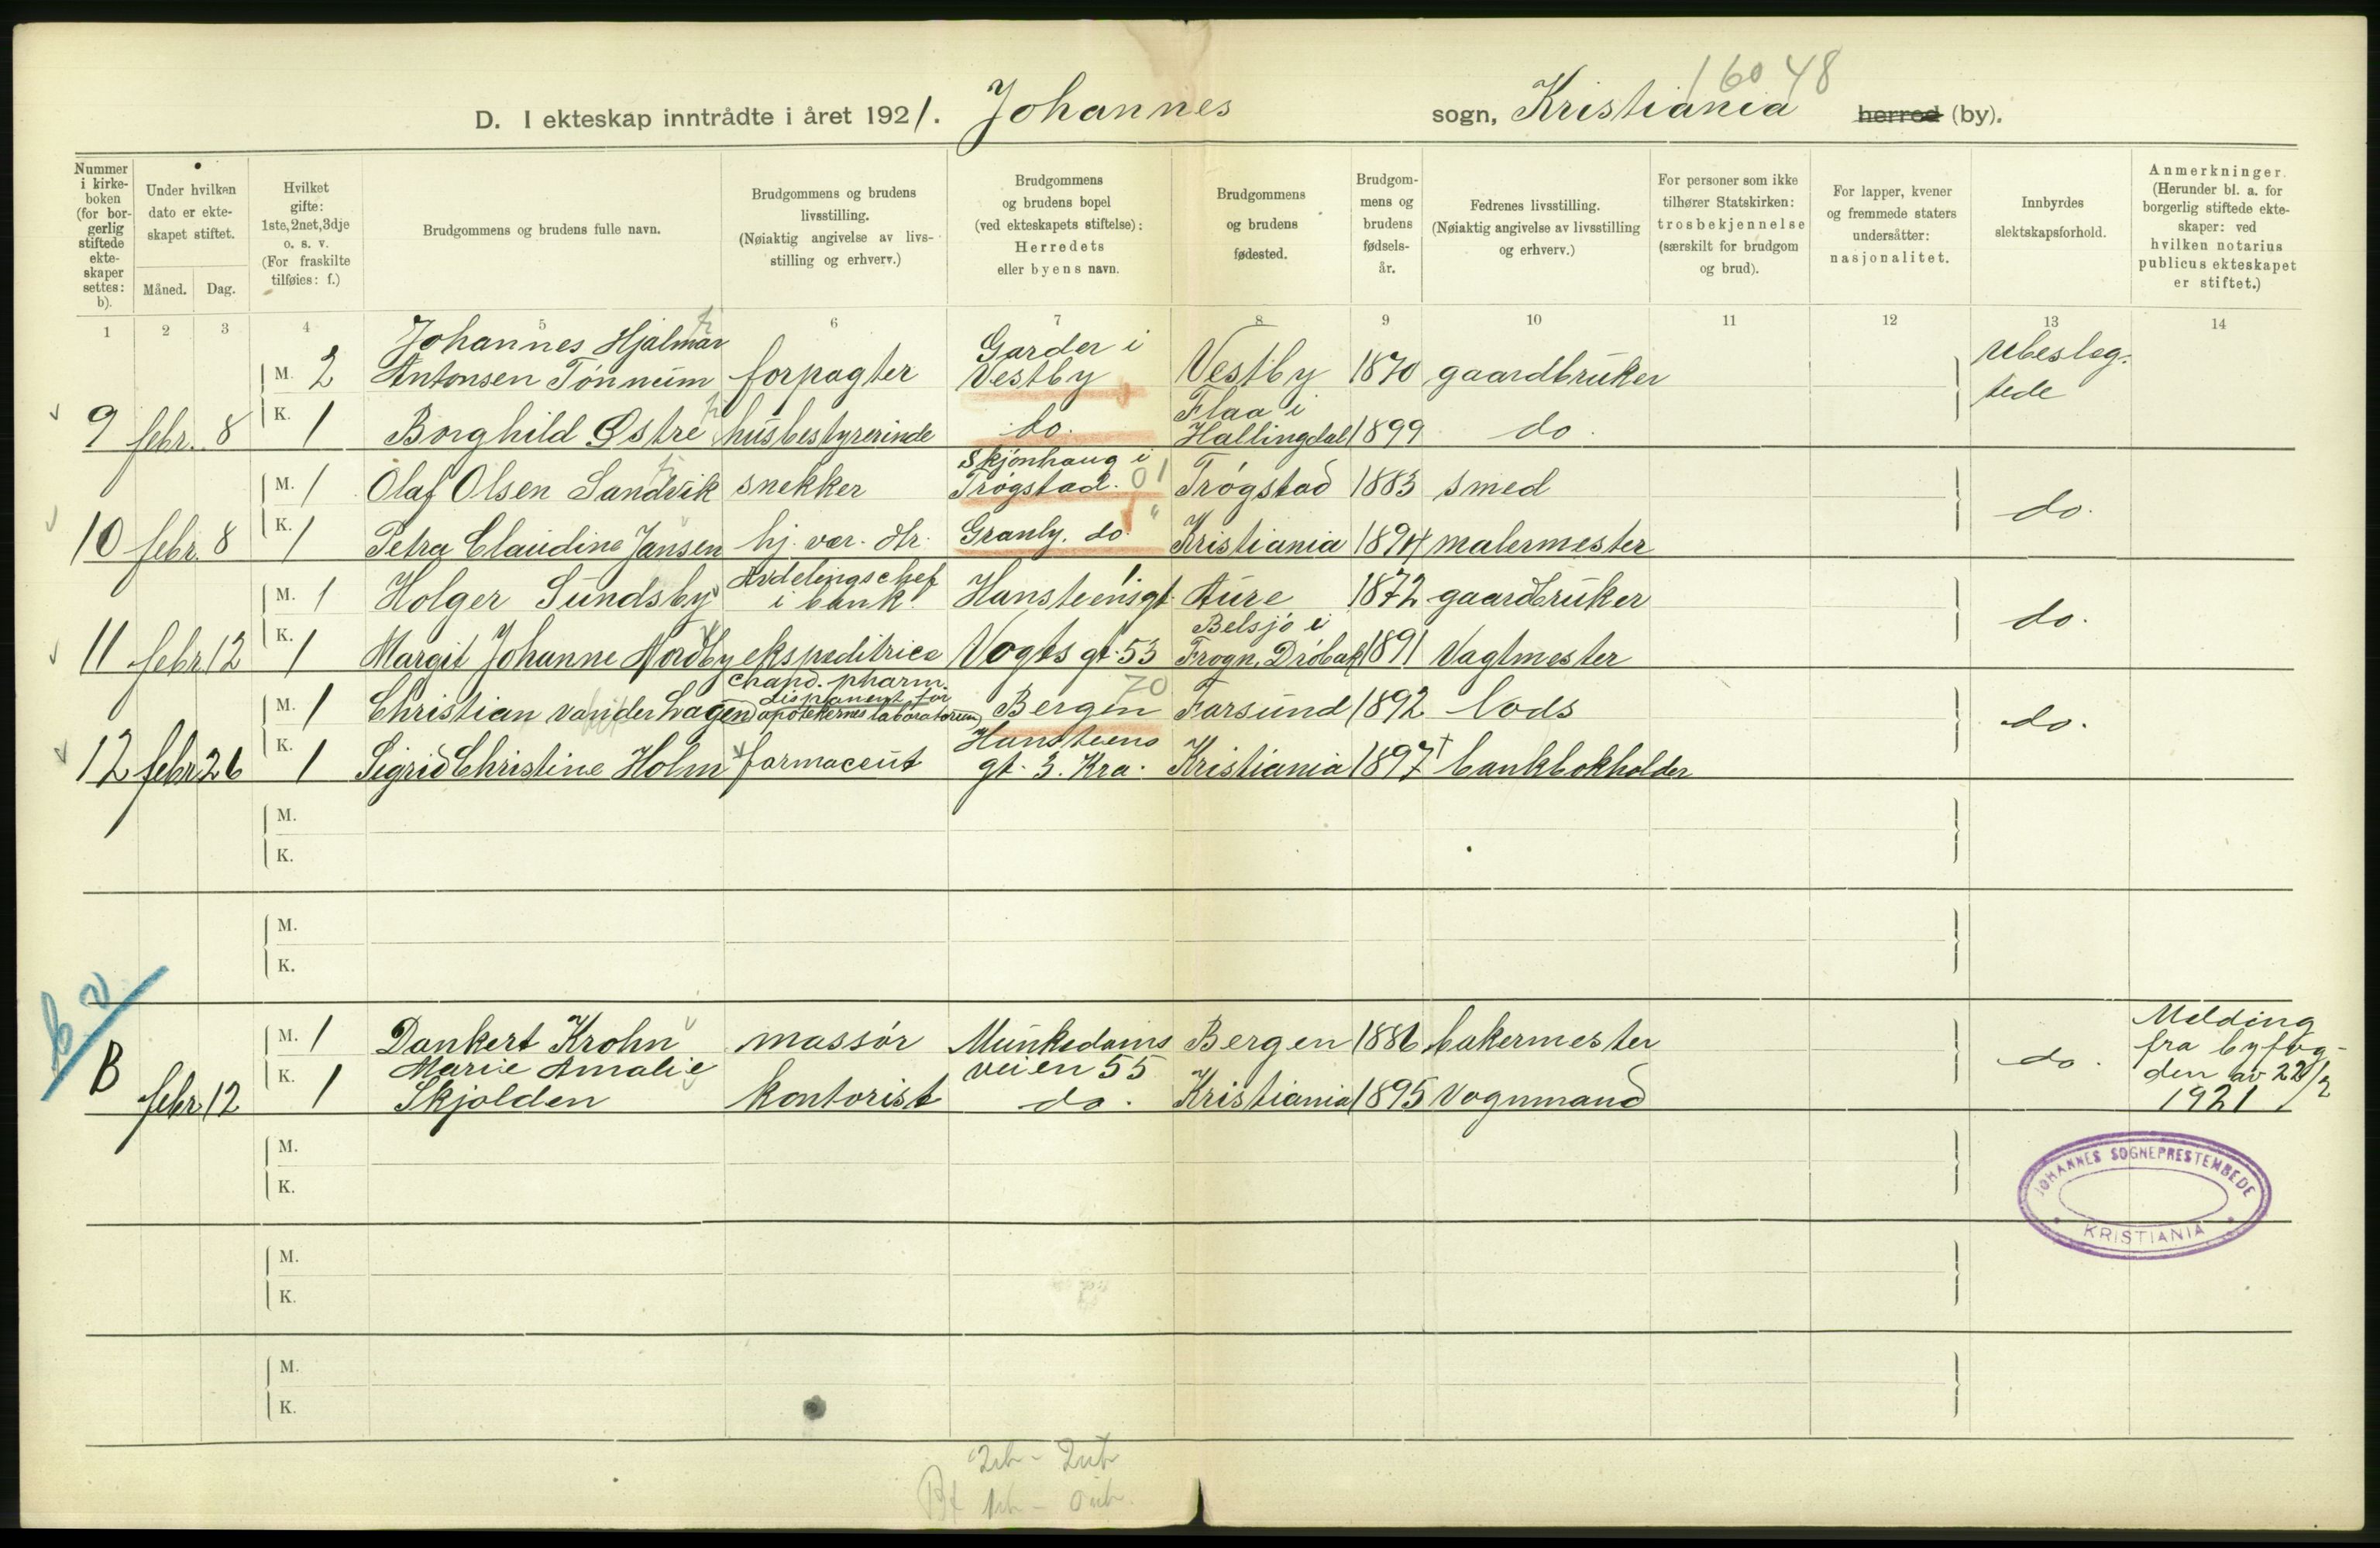 16048
D. I ekteskap inntrådte i året 1921. Johannes sogn, Kristiania herred (by).
Nummer i kirkeboken (for borgerlig stiftede ekteskaper settes: b).
Under hvilken dato er ekteskapet stiftet.
Måned. Dag.
Hvilket gifte: 1ste, 2net, 3dje o. s. v. (For fraskilte tilføies: f.)
Brudgommens og brudens fulle navn.
Brudgommens og brudens livsstilling. (Nøiaktig angivelse av livsstilling og erhverv.)
Brudgommens og brudens bopel (ved ekteskapets stiftelse): Herredets eller byens navn.
Brudgommens og brudens fødested.
Brudgommens og brudens fødselsår.
Fedrenes livsstilling. (Nøiaktig angivelse av livsstilling og erhverv.)
For personer som ikke tilhører Statskirken: trosbekjennelse (særskilt for brudgom og brud).
For lapper, kvener og fremmede staters undersåtter: nasjonalitet.
Innbyrdes slektskapsforhold.
Anmerkninger. (Herunder bl. a. for borgerlig stiftede ekteskaper: ved hvilken notarius publicus ekteskapet er stiftet.)
1 2 3 4 5 6 7 8 9 10 11 12 13 14
M. 2 Johannes Hjalmar Antonsen Tønneüm forpagter Garder i Vestby Vestby 1870 gaardbrüker Ubeslegtede
9 febr. 8 K. 1 Borghild Østre hüsbestyrerinde do. Flaa i Hallingdal 1899 do.
M. 1 Olaf Olsen Sandvik snekker Skjønhaug i Trøgstad. 01 Trøgstad 1883 smed do.
10 febr. 8 K. 1 Petra Claudine Jansen hj. vær. dtr. Granly. do. Kristiania 1894 malermester
M. 1 Holger Sündsby Avdelingschef i bank. Hansteensgt. 1 Aüre 1872 gaardbrüker do.
11 febr 12 K. 1 Margit Johanne Nordby ekspeditrice Vogts gt. 53 Belsjø i Frogn, Drøbak 1891 Vagtmester
M. 1 Christian van der Hagen chand. pharm. (disponent for apotekernes laboratorium) Bergen 70 Farsund 1892 lods do.
12 febr 26 K. 1 Sigrid Christine Holm farmaceüt Hansteens gt. 3. Kra. Kristiania 1897 † bankbokholder
M.
K.
M.
K.
M. 1 Dankert Krohn massør Munkedamsveien 55 Bergen 1886 bakermester do. Melding fra byfogden av 22/2 1921
B febr 12 K. 1 Marie Amalie Skjolden kontorist do. Kristiania 1895 Vognmand
M.
K.
JOHANNES SOGNEPRESTEMBEDE
KRISTIANIA
M.
K.
M.
K.